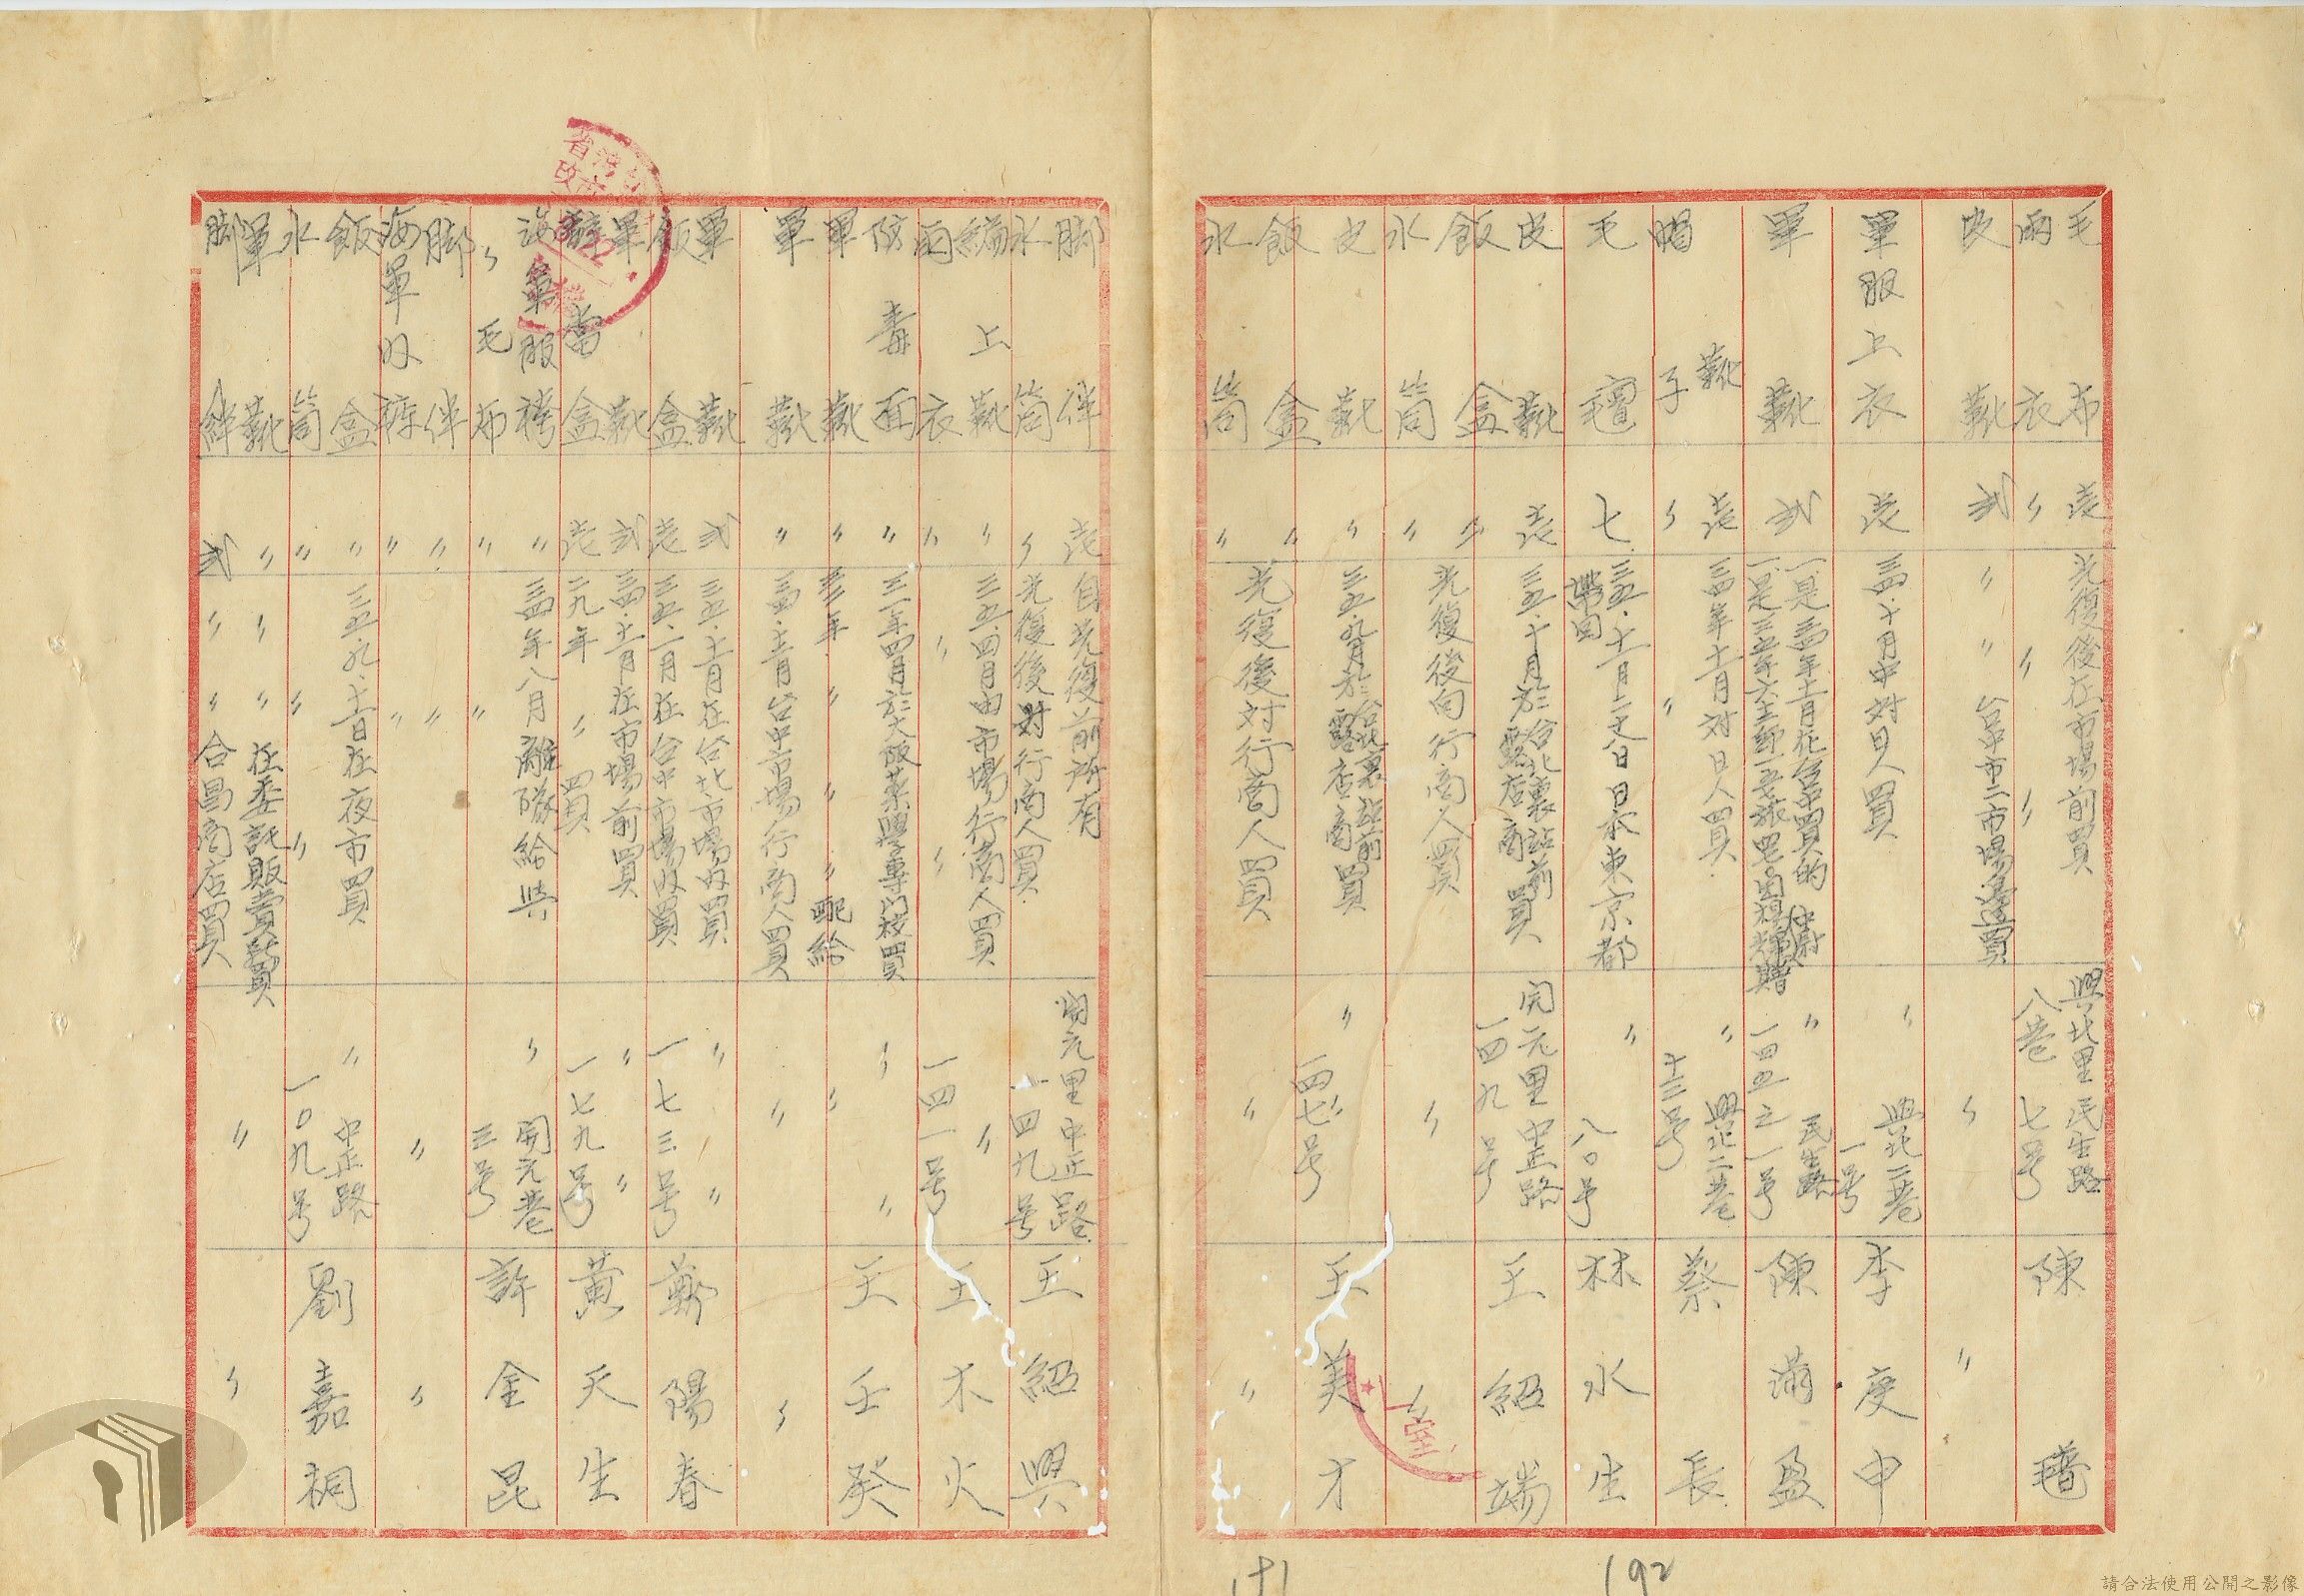 毛布 壱 光復後在市場前買 興北里民生路
雨衣 〃 〃 〃 八巷七号 陳
皮靴 弐 〃 〃 台中市二市場邊買 〃 〃
軍服上衣 壱 三四.十月中対日人買 〃 興北一巷一号 李庚申
軍靴 弐 一是三四年十一月在台中買的
〃 民生路一四五之一号 陳滿盈
靴 壱 三四年十一月対日人買. 〃 興北二巷
帽子 〃 〃 十三号 蔡長
毛氈 七 三五.十一月二十八日日本東京都帶回 〃 八〇号 林水生
皮靴 壱 三五.十月於台北裏站前露店商買 開元里中正路
飯盒 〃 一四九号 王紹端
水筒 〃 光復後向行商人買 〃 〃
皮靴 〃 三五.九月於台北裏站前露店商買 〃 〃
飯盒 〃 一四七号 王美才
水筒 〃 光復後対行商人買 〃 〃
脚絆 壱 自光復前所有 開元里中正路
水筒 〃 光復後対行商人買. 一四九号 王紹興
編上靴 〃 三五.四月由市場行商人買 〃
雨衣 〃 〃 〃 一四一号 王木火
防毒面 〃 三一年四月於大阪薬學專門校買 〃 〃
軍靴 〃 三三年.〃 〃 〃 配給 〃 王壬癸
軍靴 〃 三四.十一月台中市場行商人買 〃 〃
軍靴 弐 三五.十一月在台北市場内買 〃 〃
飯盒 壱 三五.一月在台中市場内買 一七三号 鄭陽春
軍靴 弐 三四.十一月在市場前買 〃 〃
辨當盒 壱 二九年 〃 買 一七九号 黃天生
海軍服袴 〃 三四年八月離隊給與 〃 開元巷
〃毛布 〃 〃 三号 許金昆
脚絆 〃 〃 〃 〃
海軍外裤 〃 〃
飯盒 〃 三五.九.十一日在夜市買 〃 中正路
水筒 〃 〃 〃 一〇九号 劉嘉桐
軍靴 〃 〃 〃 在委託販賣部買
脚絆 弐 〃 〃 合昌商店買 〃 〃
192
請合法使用公開之影像